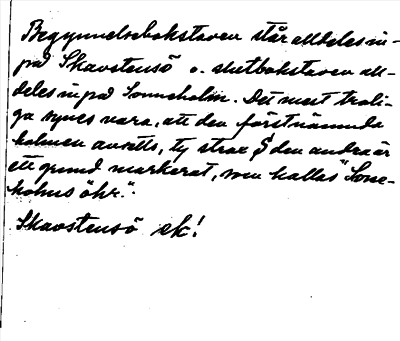 Begynnelsebokstaven står alldeles in-
på Skavstensö o. slutbokstaven all-
deles inpå Sonneholm. Det mest troli-
ga synes vara, att den förstnämnda
holmen avsetts, ty strax S den andra är
ett grund markerat, som kallas "Sonne-
holms öhr".
Skavstensö ek!